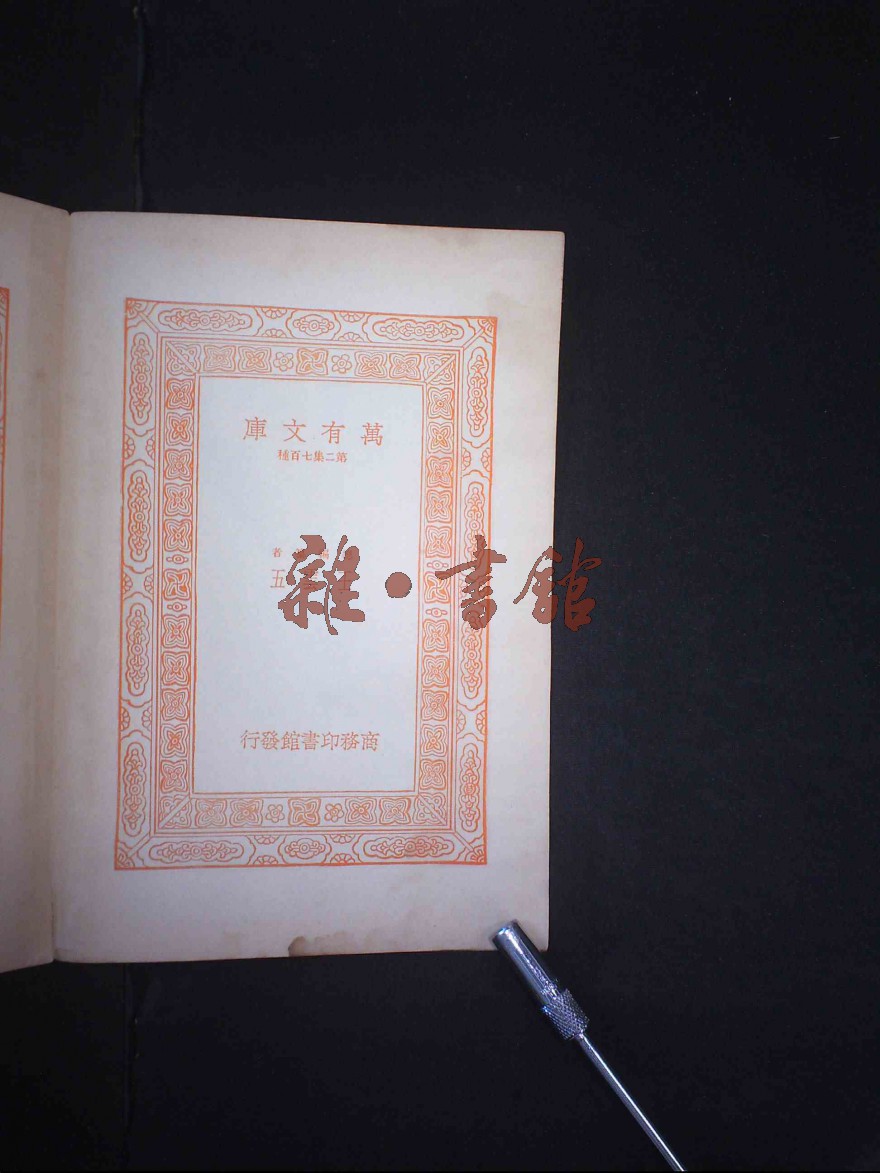 萬有文庫
第二集七百種
著
五
雜·書館
商務印書館發行